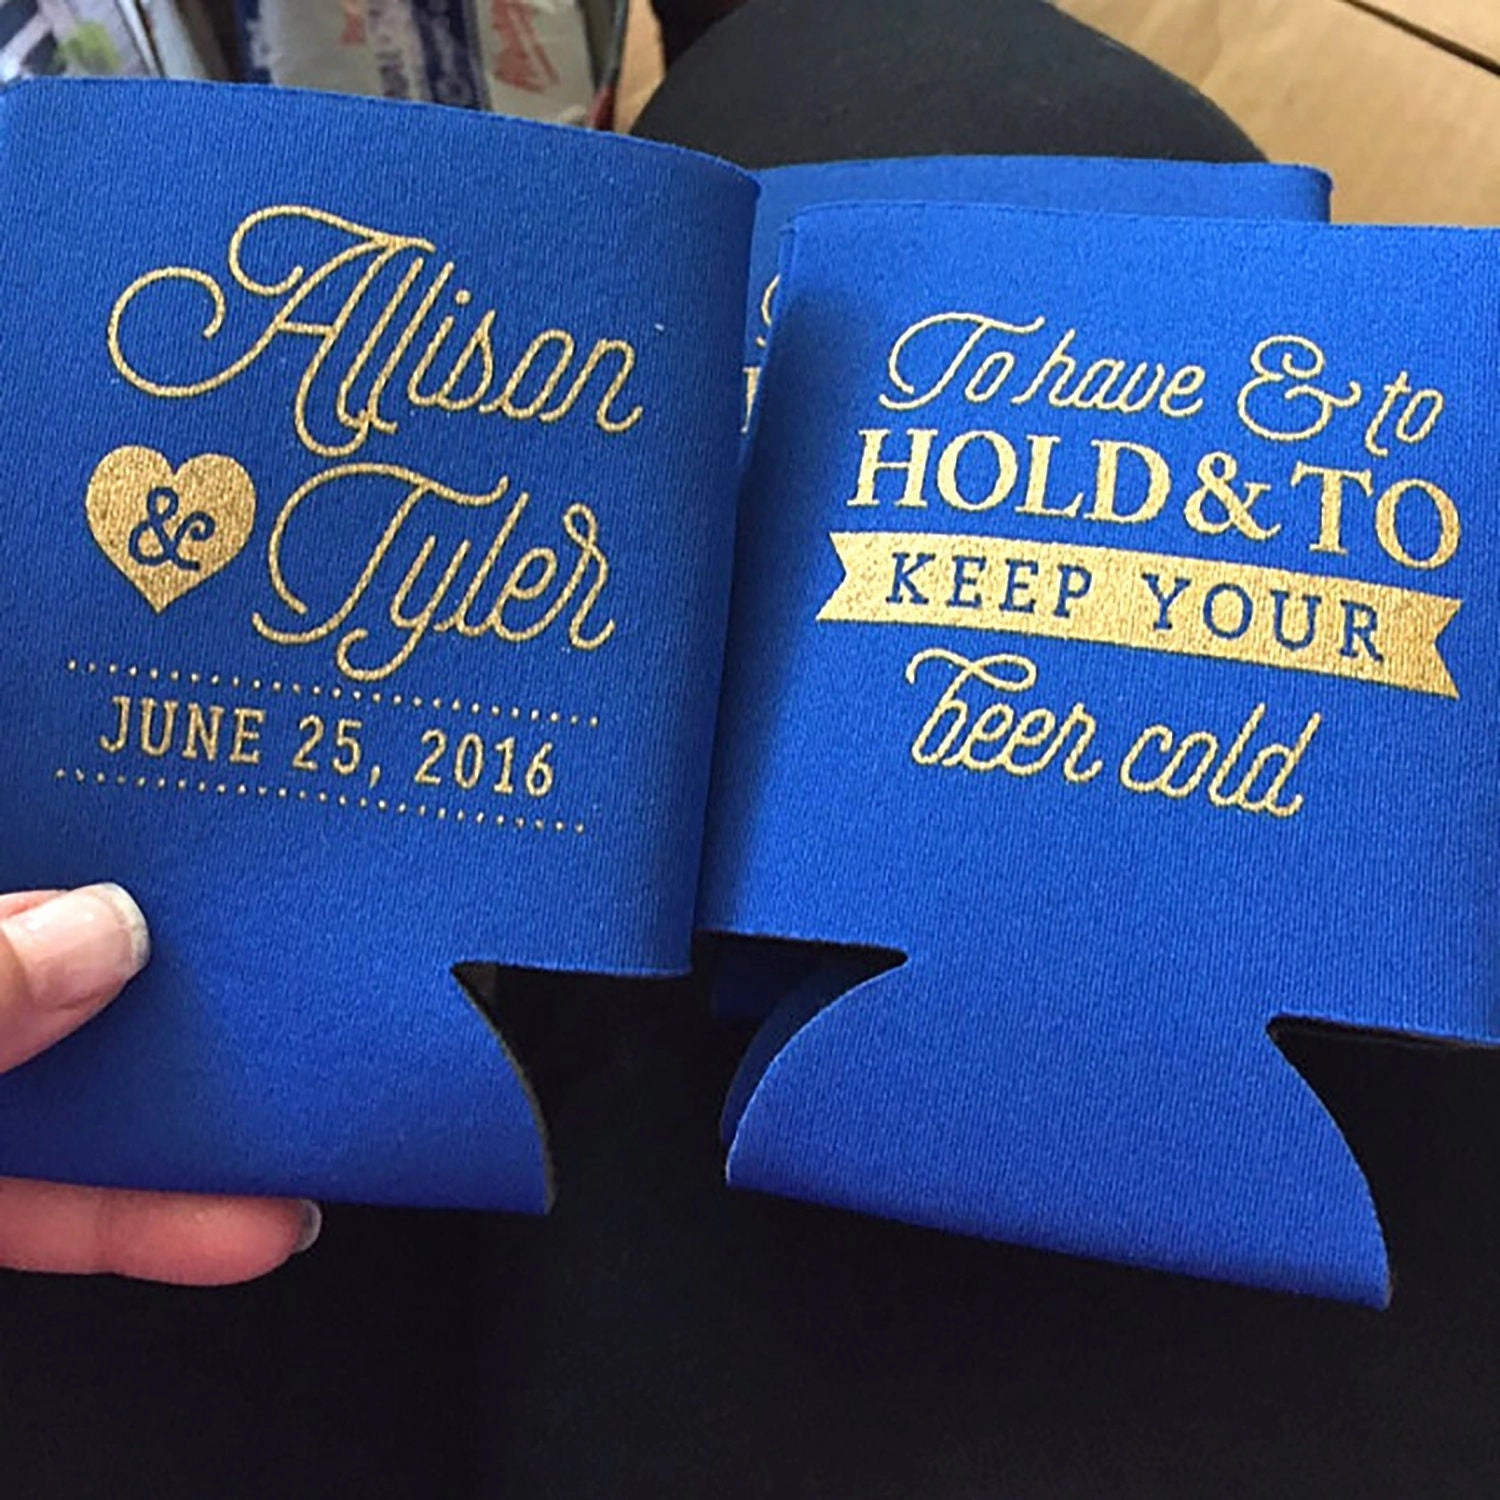 Allison
& Tyler
JUNE 25, 2016
To have & to
HOLD & TO
KEEP YOUR
beer cold